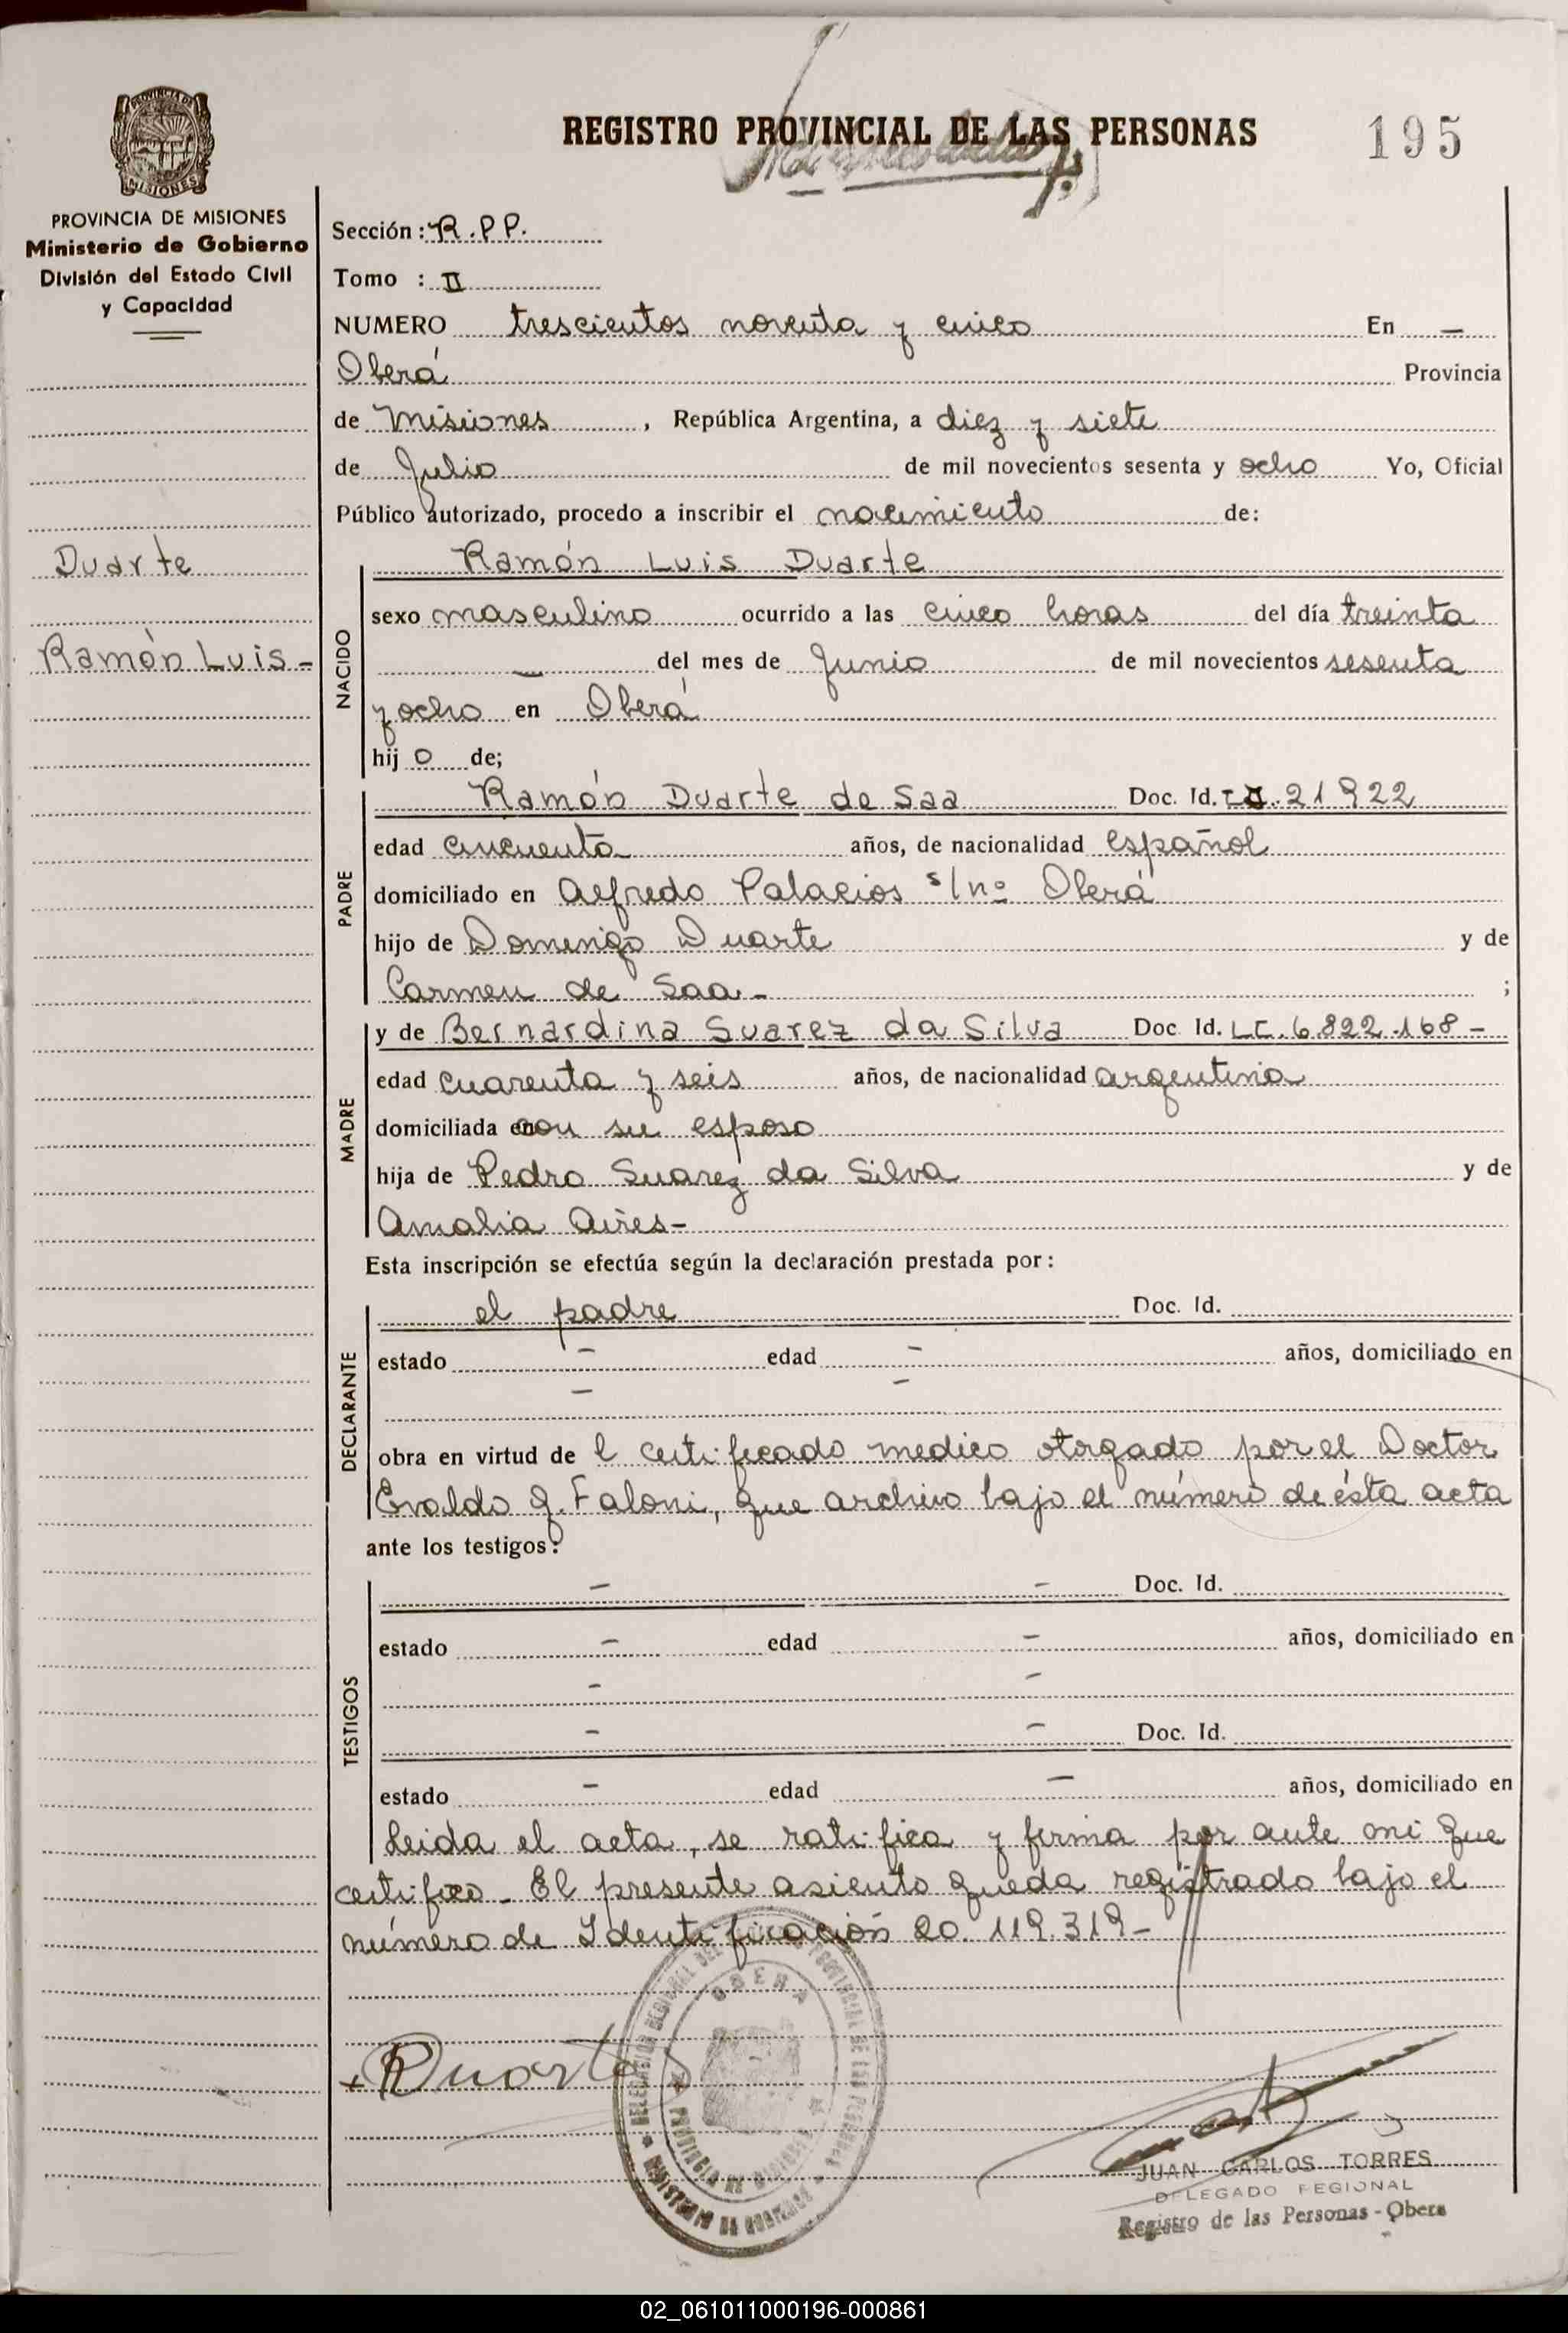 REGISTRO PROVINCIAL DE LAS PERSONAS
195
PROVINCIA DE MISIONES
Ministerio de Gobierno
División del Estado Civil
y Capacidad
Sección: R.P.P.
Tomo : II
NUMERO trescientos noventa y cinco En —
Oberá Provincia
de Misiones, República Argentina, a diez y siete
de Julio de mil novecientos sesenta y ocho Yo, Oficial
Público autorizado, procedo a inscribir el nacimiento de:
Duarte
Ramón Luis -
NACIDO
Ramón Luis Duarte
sexo masculino ocurrido a las cinco horas del día treinta
— del mes de Junio de mil novecientos sesenta
y ocho en Oberá
hijo de;
PADRE
Ramón Duarte de Saa Doc. Id. 21922
edad cincuenta años, de nacionalidad español
domiciliado en Alfredo Palacios s/nº Oberá
hijo de Domingo Duarte y de
Carmen de Saa - ;
MADRE
y de Bernardina Suarez da Silva Doc. Id. LC. 6.822.168 -
edad cuarenta y seis años, de nacionalidad argentina
domiciliada en con su esposo
hija de Pedro Suarez da Silva y de
Amalia Aires -
Esta inscripción se efectúa según la declaración prestada por:
DECLARANTE
el padre Doc. Id.
estado - edad - años, domiciliado en
- -
obra en virtud de l certificado medico otorgado por el Doctor
Evaldo Q. Faloni, que archivo bajo el número de ésta acta
ante los testigos:
TESTIGOS
- - Doc. Id.
estado - edad - años, domiciliado en
- -
- - Doc. Id.
estado - edad - años, domiciliado en
Leida el acta, se ratifica y firma por ante mi que
certifico - El presente asiento queda registrado bajo el
número de Identificación 20.119.319 -
Duarte
OBERA
PROVINCIA DE MISIONES
JUAN CARLOS TORRES
DELEGADO REGIONAL
Registro de las Personas - Obera
02_061011000196-000861